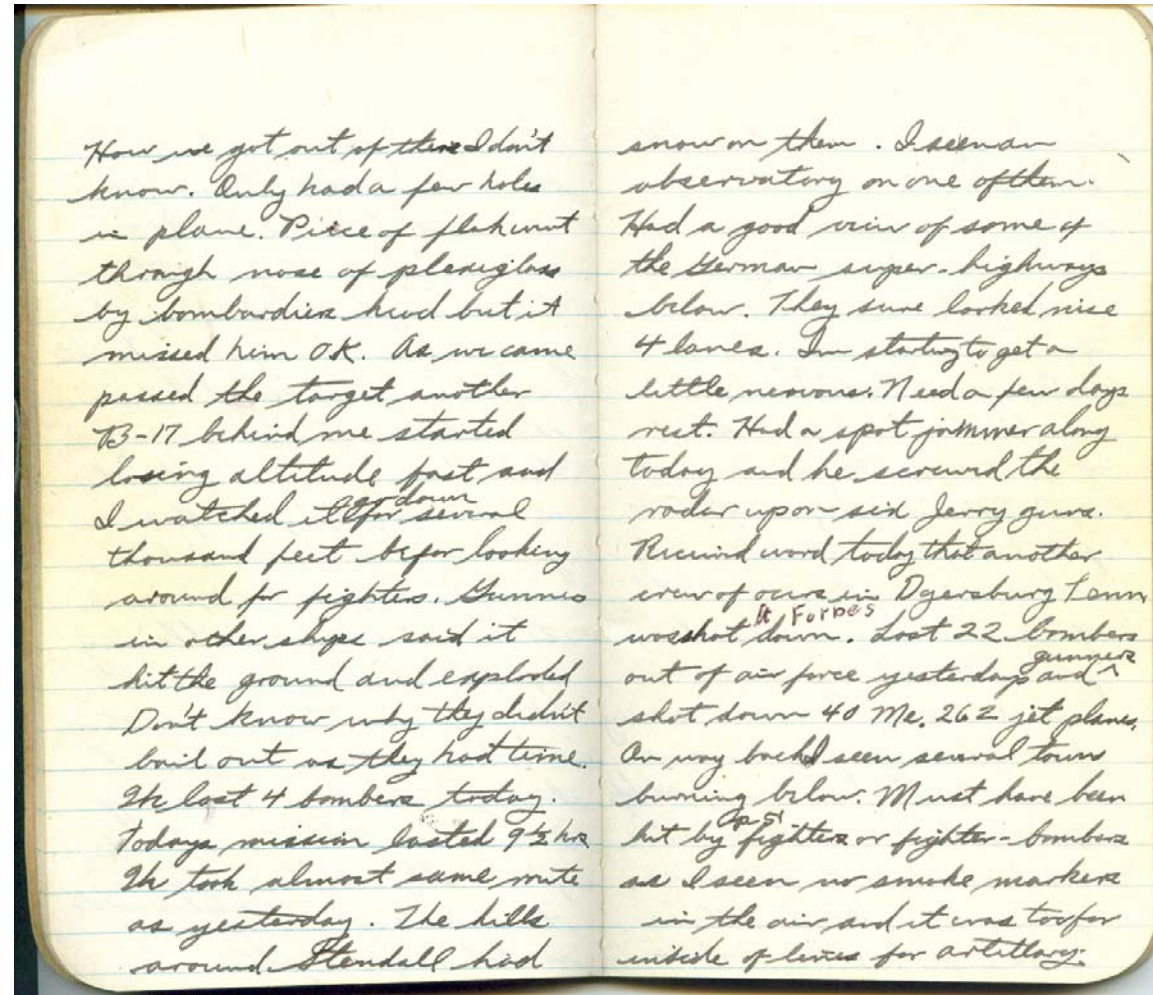 How we got out of there I don't
know. Only had a few holes
in plane. Piece of flak went
through nose of plexiglass
by bombardiers head but it
missed him OK. As we came
passed the target another
B-17 behind me started
losing altitude fast and
go down
I watched it for several
thousand feet befor looking
around for fighters. Gunners
in other ships said it
hit the ground and exploded
Don't know why they didn't
bail out as they had time.
We lost 4 bombers today.
Todays mission lasted 9½ hrs.
We took almost same route
as yesterday. The hills
around Stendall had
snow on them. I seen an
observatory on one of them.
Had a good view of some of
the German super-highways
below. They sure looked nise
4 lanes. Im starting to get a
little nervous. Need a few days
rest. Had a spot jammer along
today and he screwed the
radar up on six Jerry guns.
Received word today that another
crew of ours in Dyersburg Tenn
Lt Forbes
was shot down. Lost 22 bombers
gunners
out of air force yesterday and ^
shot down 40 Me. 262 jet planes.
On way back I seen several town
burning below. Must have been
P-51
hit by fighters or fighter-bombers
as I seen no smoke markers
in the air and it was too far
inside of lines for artillary.